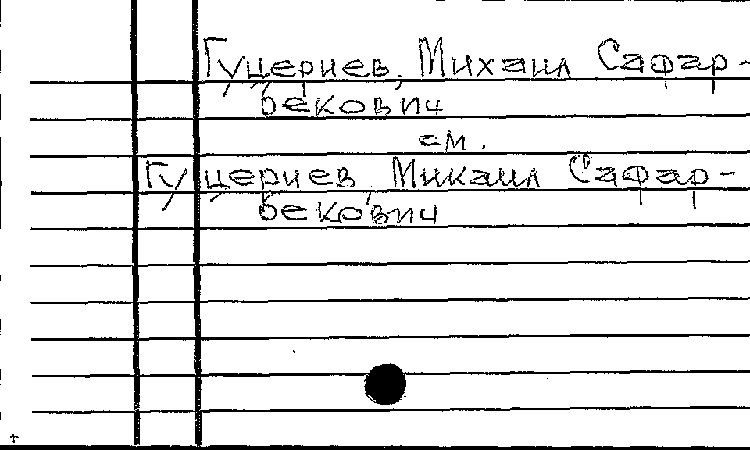 Гуцериев, Михаил Сафар-
бекович
см.
Гуцериев, Микаил Сафар-
бекович